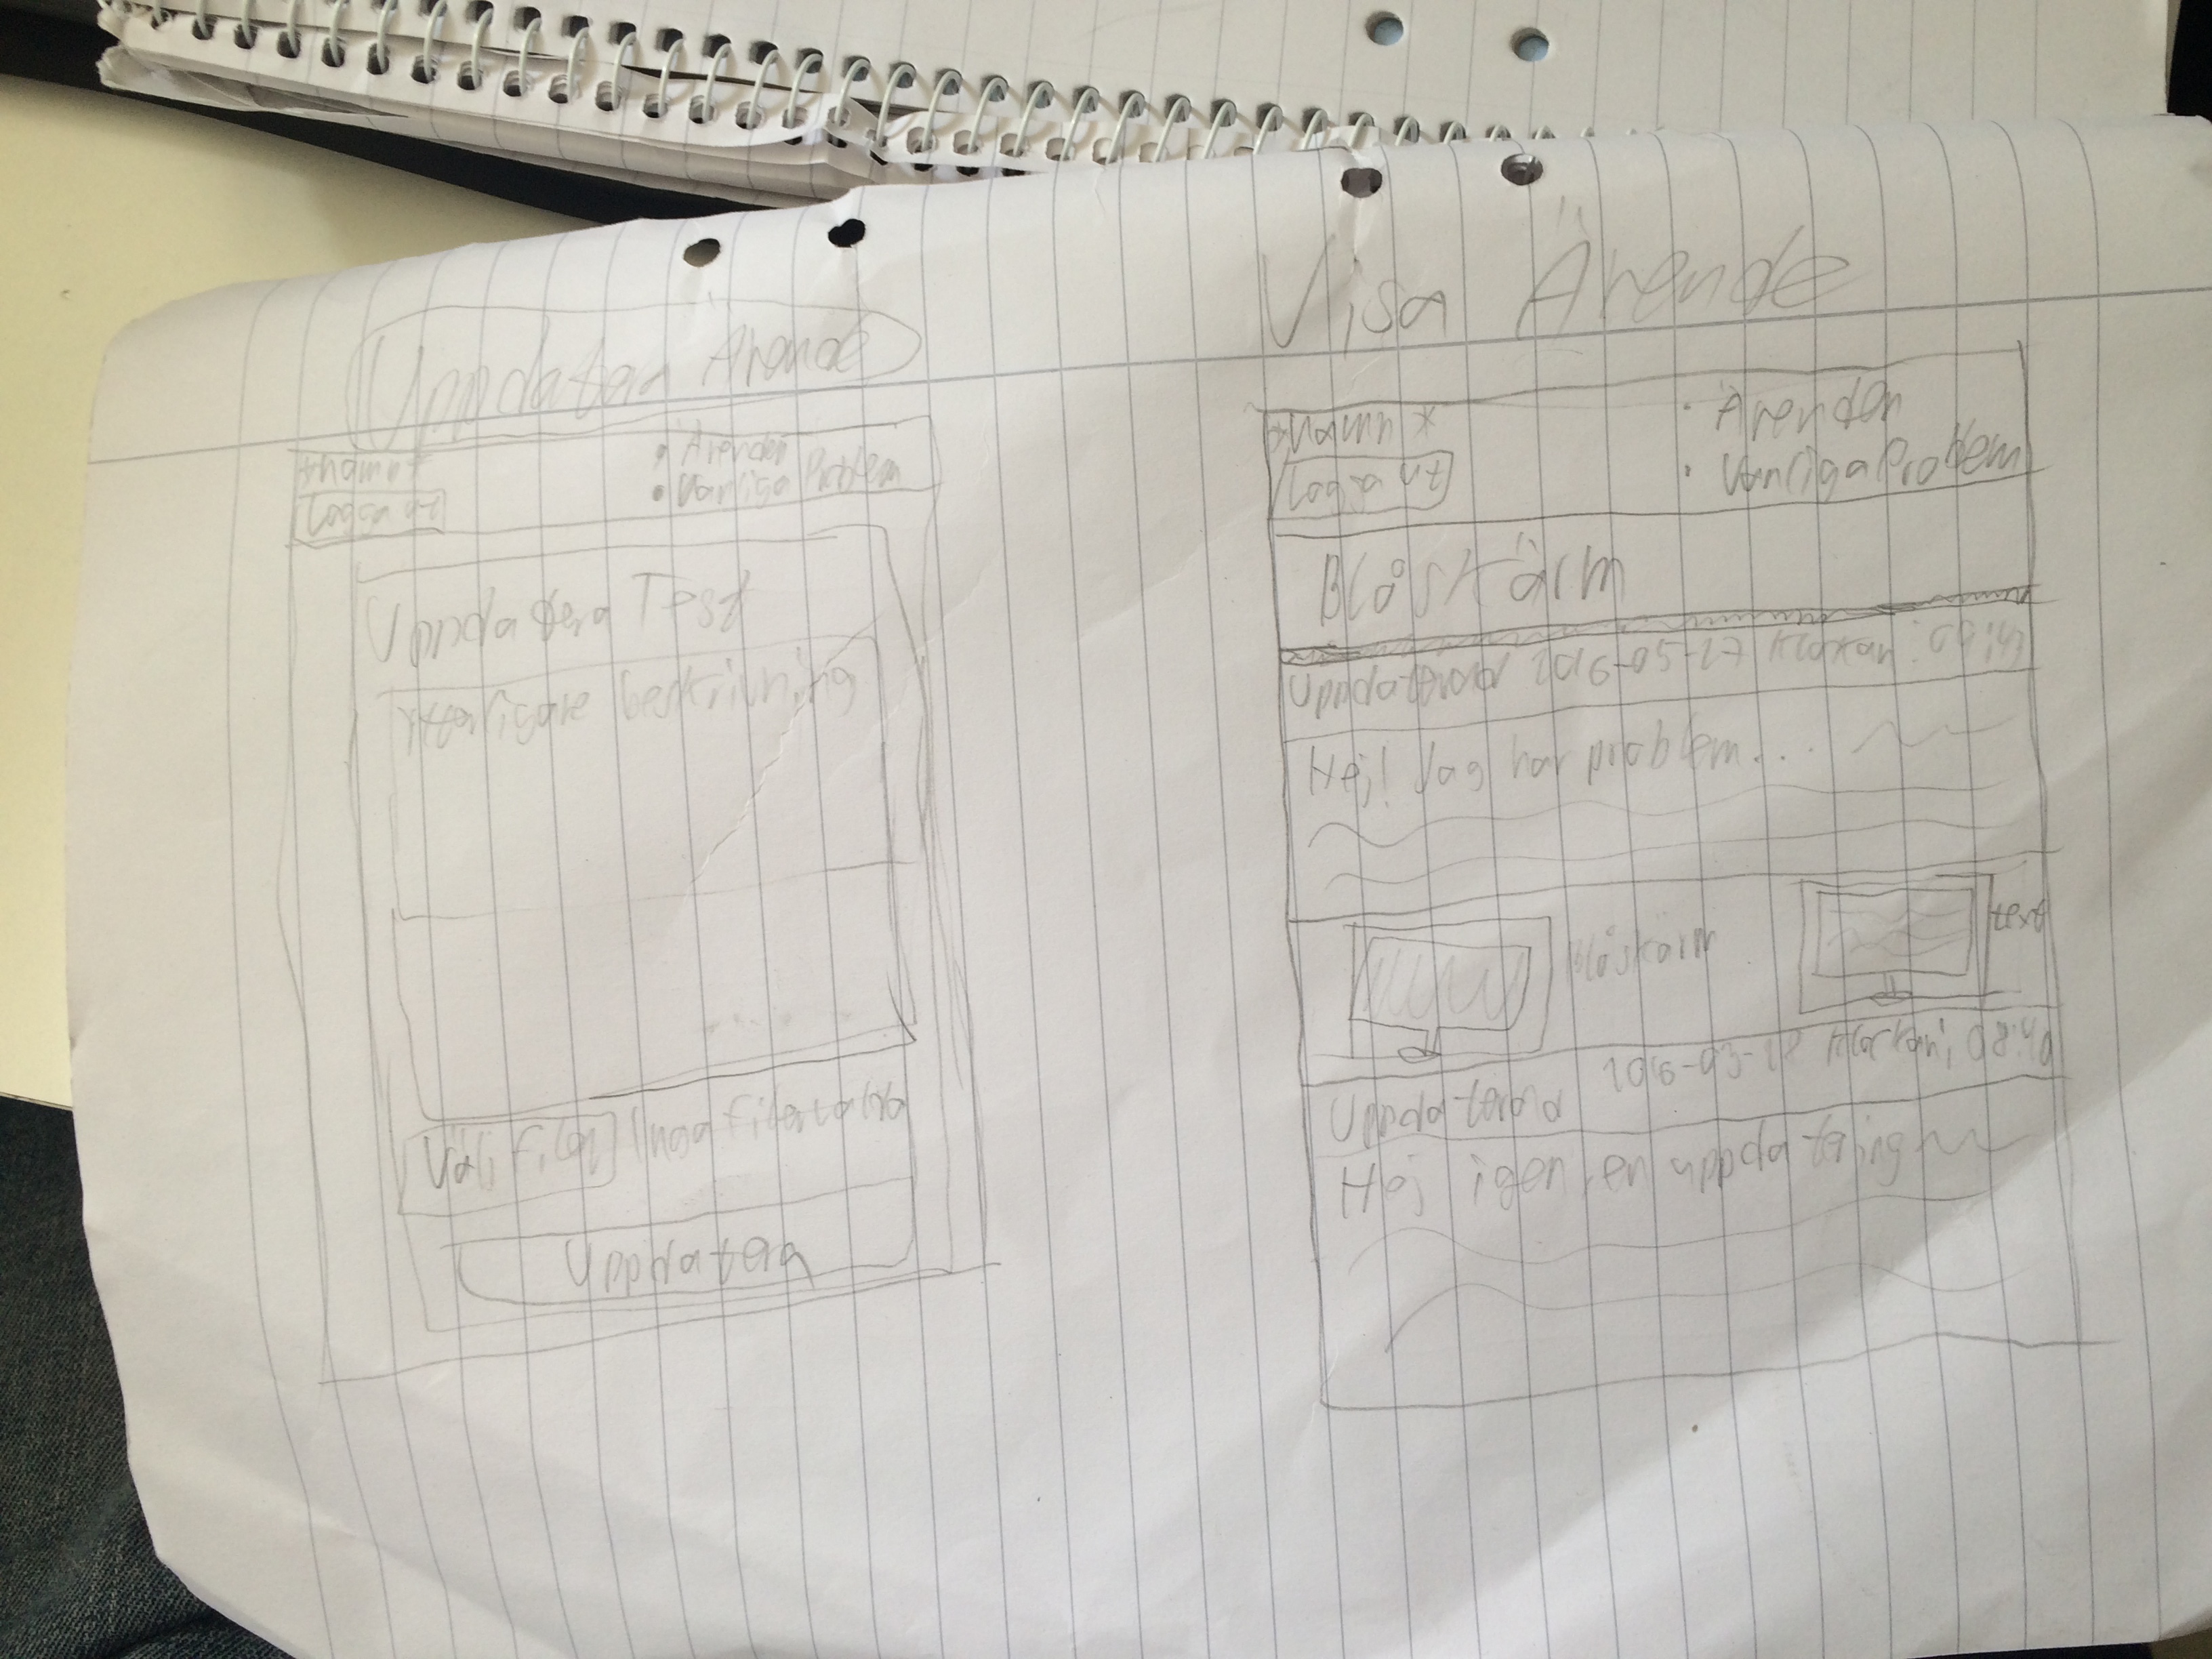 Uppdatera Ärende
*namn*
Logga ut
• Ärenden
• Vanliga Problem
Uppdatera Test
Ytterligare beskrivning
Välj filer Inga filer valda
Uppdatera
Visa Ärende
*namn*
Logga ut
• Ärenden
• Vanliga Problem
Blåskärm
Uppdaterad 2016-05-27 Klockan:
Hej! Jag har problem...
Blåskärm
text
Uppdaterad 2016-05-28 Klockan: 08:40
Hej igen, en uppdatering